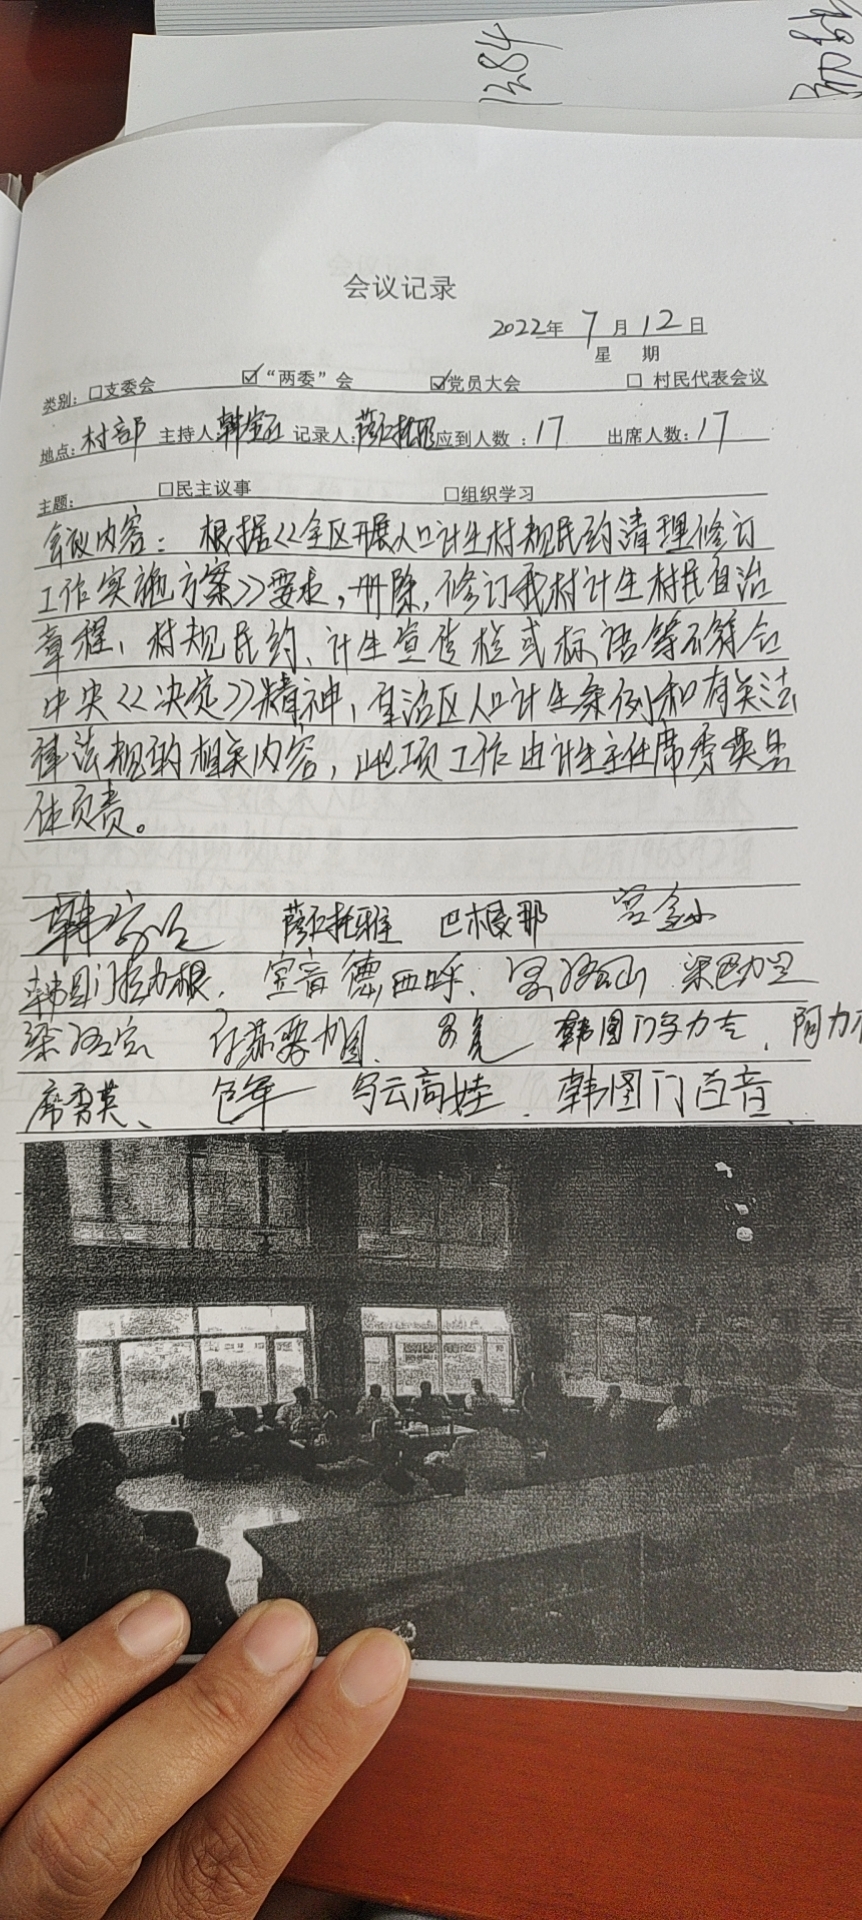 1384
会议记录
2022年 7月12日
星 期
类别：□支委会 ☑“两委”会 ☑党员大会 □ 村民代表会议
地点：村部 主持人 记录人： 应到人数 ：17 出席人数：17
主题： □民主议事 □组织学习
会议内容：根据《全区开展人口计生村规民约清理修订
工作实施方案》要求，册除，修订我村计生村民自治
章程、村规民约、计生宣传栏或标语等不符合
中央《决定》精神，自治区人口计生条例和有关法
律法规的相关内容，此项工作由计生主任席秀英具
体负责。
托雅 巴根那 宫金小
韩图门 根. 宝音德 西呼、 梁巴力
图、 韩图门 力 、 阿力
席秀英、 包年 乌云高娃、 韩图门 音